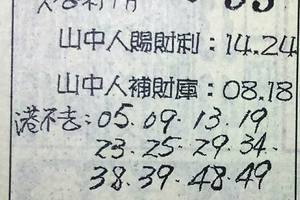 山中人賜財利：14.24
山中人補財庫：08.18
港不出：05.09.13.19
23.25.29.34.
38.39.48.49